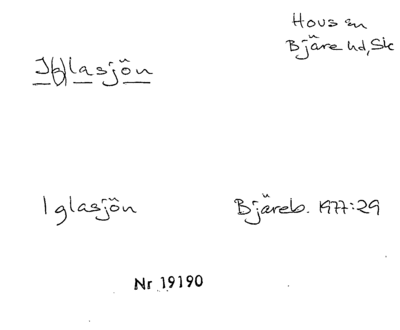 Hovs sn
Bjäre hd, Sk
I(g)lasjön
Iglasjön
Bjäreb. 1977:29
Nr 19190